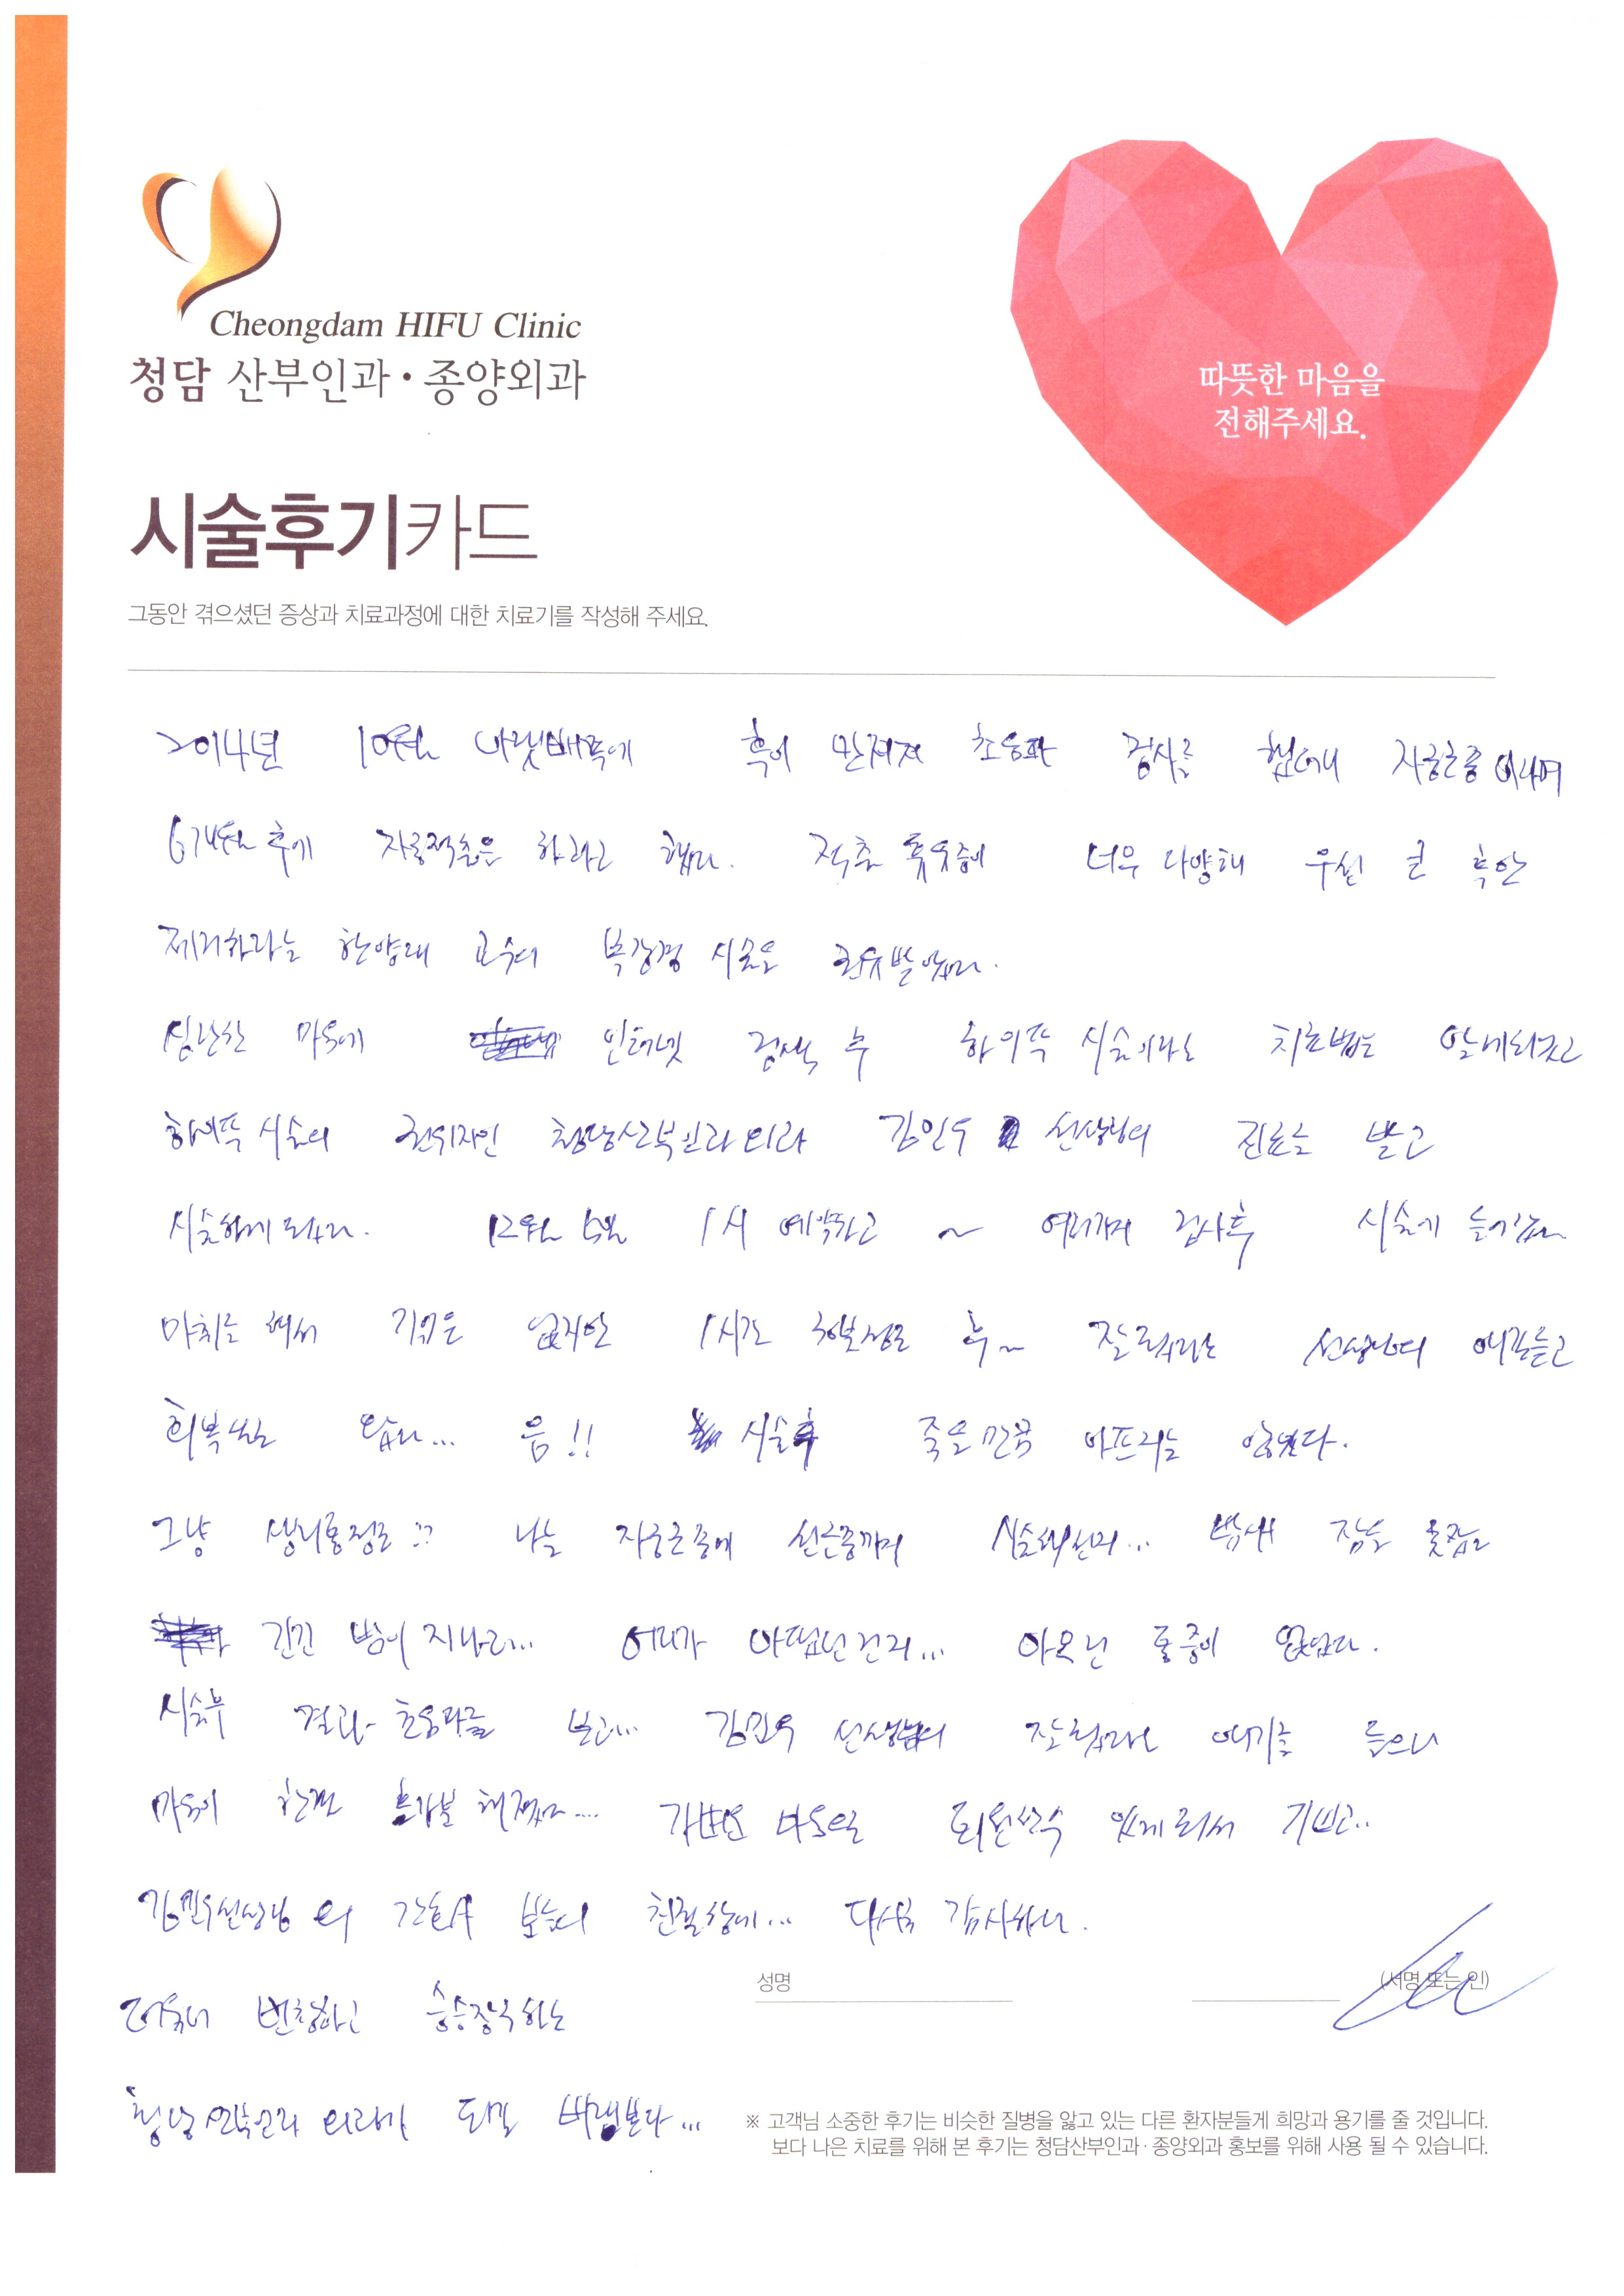 Cheongdam HIFU Clinic
청담 산부인과·종양외과
따뜻한 마음을
전해주세요.
시술후기카드
그동안 겪으셨던 증상과 치료과정에 대한 치료기를 작성해 주세요.
2014년 10월 아랫배쪽에 혹이 만져져 초음파 검사를 했더니 자궁근종이라며
6개월 후에 자궁적출을 하라고 했다. 적출 휴유증이 너무 다양해 우선 큰 혹만
제거하라는 한양대 교수의 복강경 시술을 권유받았다.
심난한 마음에 인터넷 검색 후 하이푸 시술이라는 치료법을 알게되었고
하이푸 시술의 권위자인 청담산부인과 의 김민우 선생님의 진료를 받고
시술하게 되었다. 12월 5일 1시 예약하고 ~ 여러가지 검사후 시술에 들어갔다
마취를 해서 기억은 없지만 1시간 정도 후~ 잘 됐다는 선생님의 얘기를 듣고
회복실로 왔다... 음!! 시술후 죽을만큼 아프지는 않았다.
그냥 생리통정도?? 나는 자궁근종에 선근증까지 시술해선지... 밤새 잠을 못잤고
긴긴 밤이 지나고... 언제가 아팠던건지... 아무런 통증이 없었다.
시술후 결과 초음파를 보고... 김민우 선생님의 잘 됐다는 얘기를 들으니
마음이 한결 홀가분 해졌다.... 가벼운 마음으로 퇴원할수 있게 되서 기쁘고..
김민우선생님 의 간호사 분들의 친절함에... 다시금 감사하다.
성명
(서명 또는 인)
더욱더 번창하고 승승장구하는
청담 산부인과 의원이 되길 바래본다...
※ 고객님 소중한 후기는 비슷한 질병을 앓고 있는 다른 환자분들게 희망과 용기를 줄 것입니다.
보다 나은 치료를 위해 본 후기는 청담산부인과·종양외과 홍보를 위해 사용 될 수 있습니다.